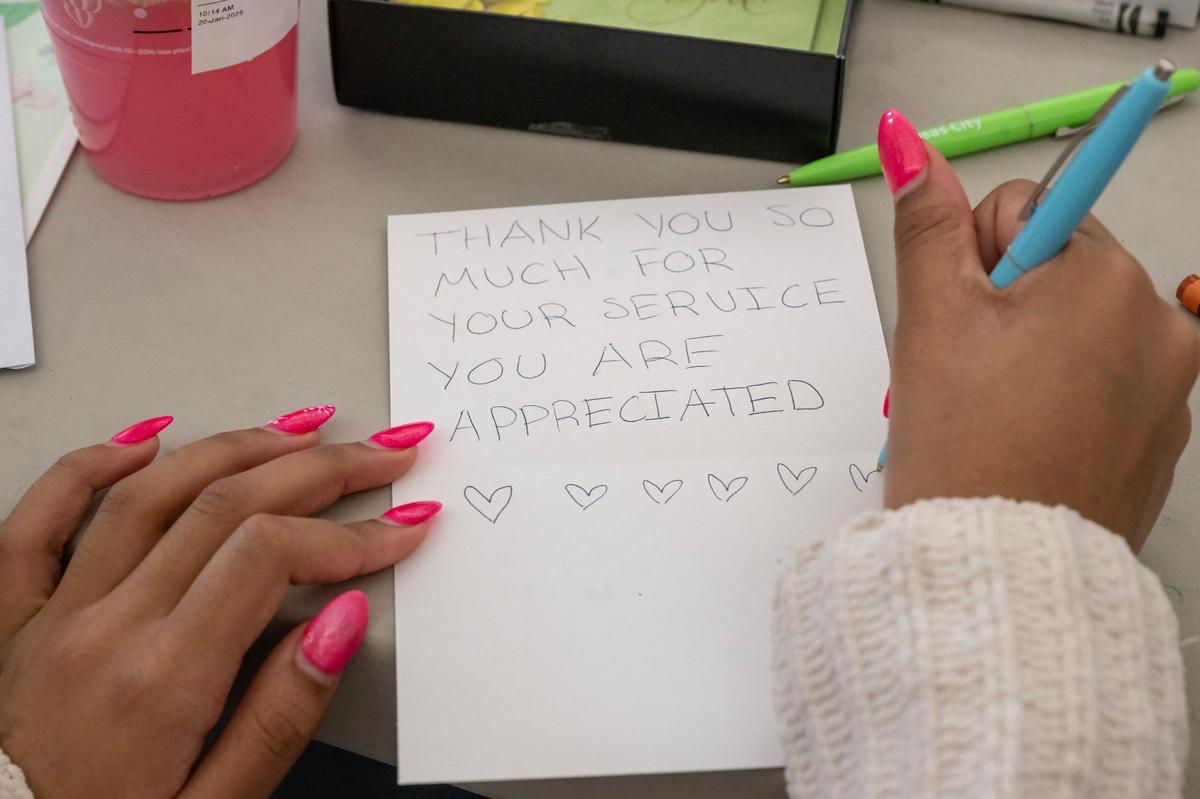 10:14 AM
20-Jan-2025
THANK YOU SO
MUCH FOR
YOUR SERVICE
YOU ARE
APPRECIATED
sas City